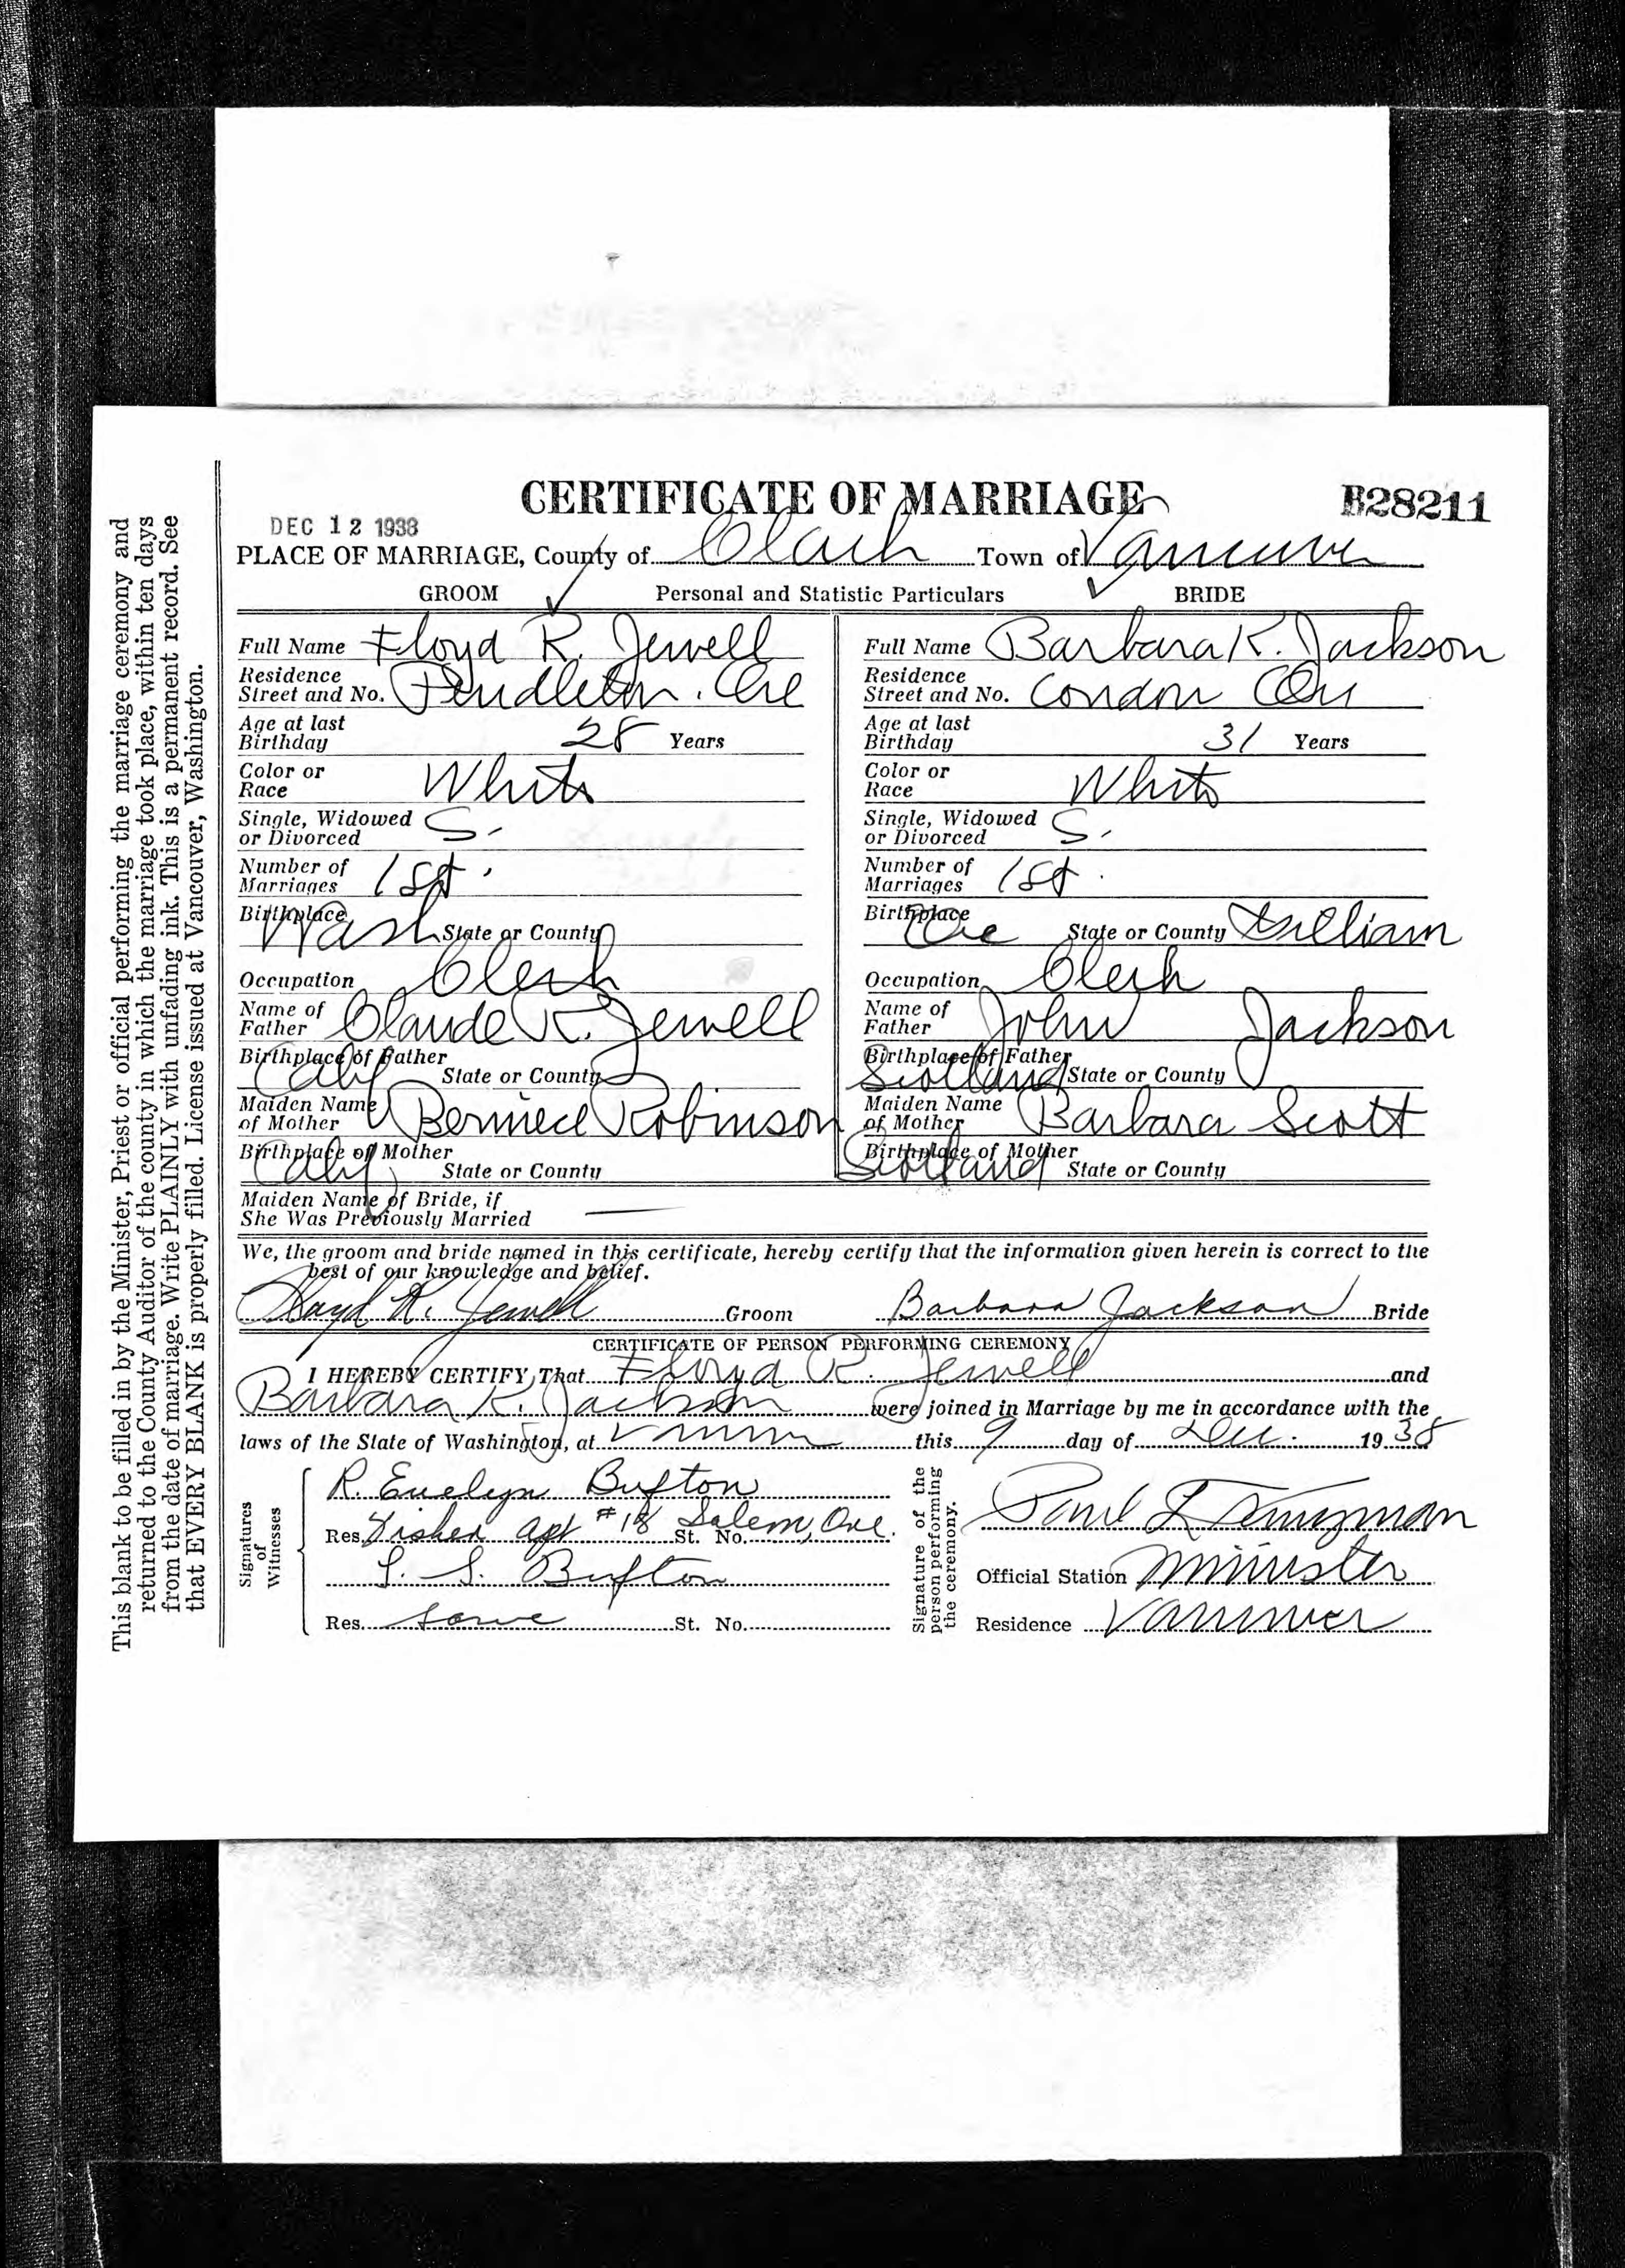 CERTIFICATE OF MARRIAGE
B28211
DEC 12 1938
PLACE OF MARRIAGE, County of Clark Town of Vancouver
GROOM Personal and Statistic Particulars BRIDE
Full Name Floyd R. Jewell
Residence
Street and No. Pendleton. Ore
Age at last
Birthday 28 Years
Color or
Race White
Single, Widowed
or Divorced S.
Number of
Marriages 1st.
Birthplace
Wash State or County
Occupation Clerk
Name of
Father Claude R. Jewell
Birthplace of Father
Calif State or County
Maiden Name
of Mother Berniece Robinson
Birthplace of Mother
Calif State or County
Full Name Barbara K. Jackson
Residence
Street and No. Condon Ore
Age at last
Birthday 31 Years
Color or
Race White
Single, Widowed
or Divorced S.
Number of
Marriages 1st.
Birthplace
Ore State or County Gilliam
Occupation Clerk
Name of
Father John Jackson
Birthplace of Father
Scotland State or County
Maiden Name
of Mother Barbara Scott
Birthplace of Mother
Scotland State or County
Maiden Name of Bride, if
She Was Previously Married —
We, the groom and bride named in this certificate, hereby certify that the information given herein is correct to the
best of our knowledge and belief.
Floyd R. Jewell Groom Barbara Jackson Bride
CERTIFICATE OF PERSON PERFORMING CEREMONY
I HEREBY CERTIFY, That Floyd R. Jewell and
Barbara K. Jackson were joined in Marriage by me in accordance with the
laws of the State of Washington, at this 9 day of Dec. 1938
Signatures
of
Witnesses
R. Evelyn Bufton
Res. Fisher apt #18 St. No. Salem, Ore.
L. S. Bufton
Res. Same St. No.
Signature of the
person performing
the ceremony.
Paul L
Official Station Minister
Residence Vancouver
This blank to be filled in by the Minister, Priest or official performing the marriage ceremony and
returned to the County Auditor of the county in which the marriage took place, within ten days
from the date of marriage. Write PLAINLY with unfading ink. This is a permanent record. See
that EVERY BLANK is properly filled. License issued at Vancouver, Washington.